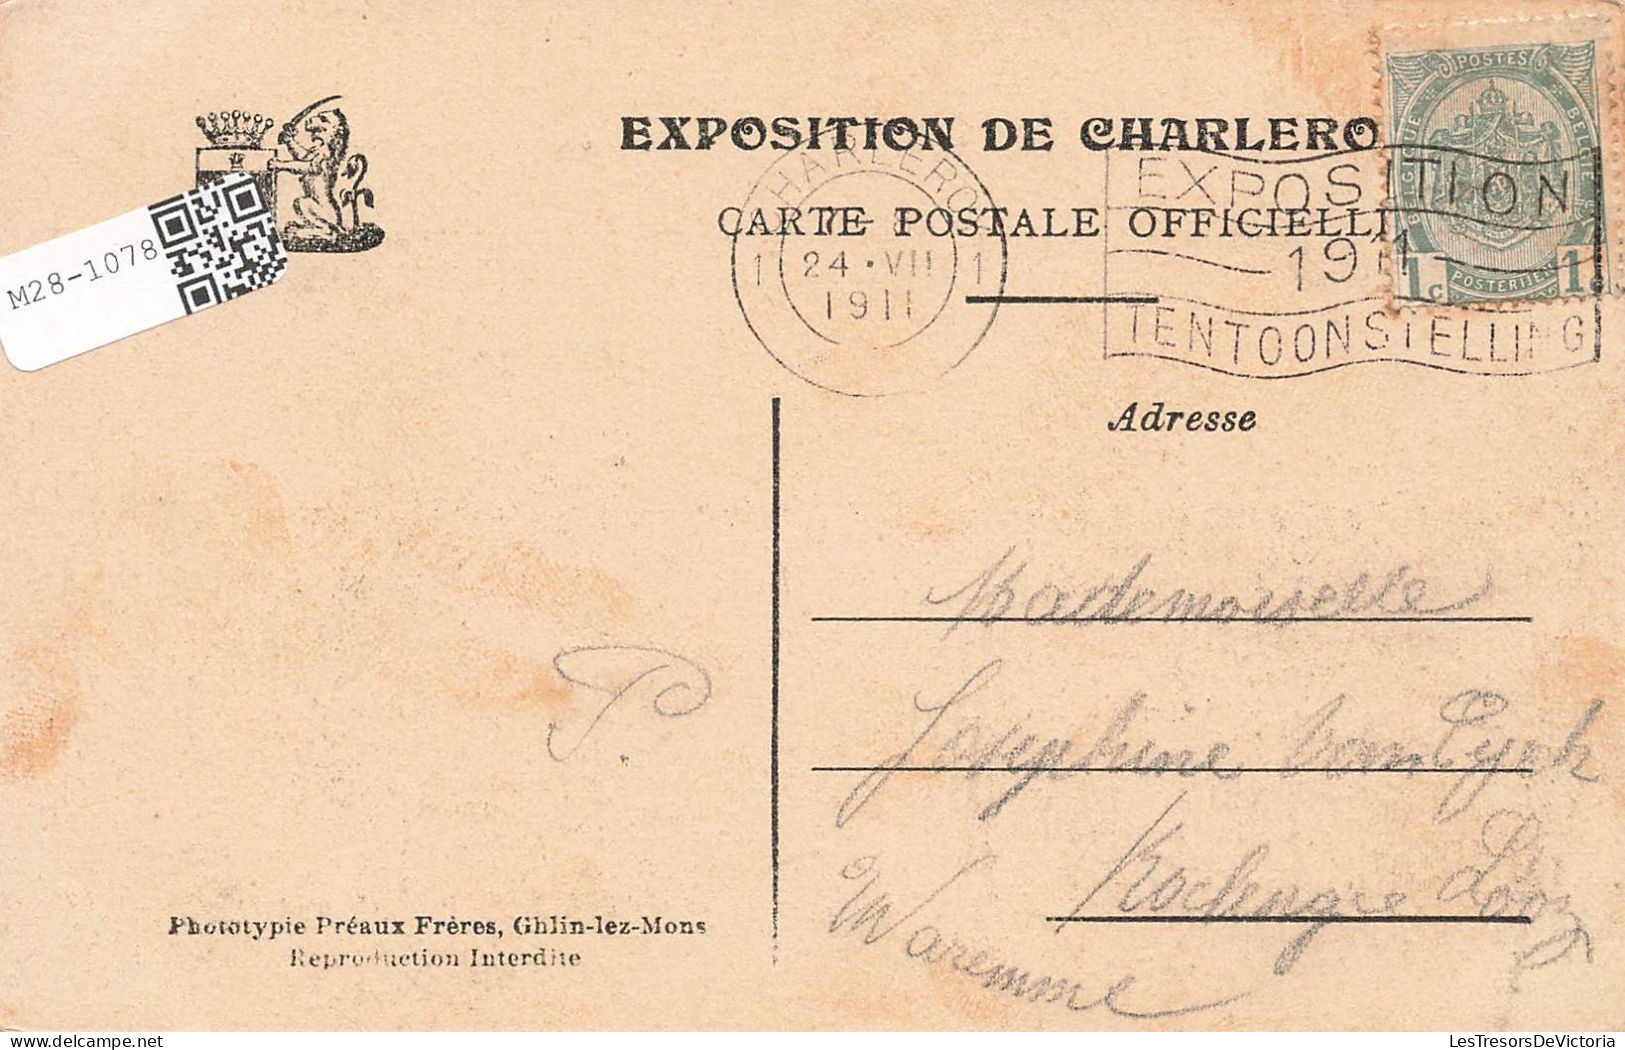 EXPOSITION DE CHARLERO
CARTE POSTALE OFFICIELL
POSTES
BELGIQUE
BELGIE
POSTERIJEN
1c 1c
CHARLEROI
1 24 · VII 1
1911
EXPOSITION
1911
TENTOONSTELLING
M28-1078
Adresse
Mademoiselle
Josephine van Eyck
Looz
Waremme
P.
Phototypie Préaux Frères, Ghlin-lez-Mons
Reproduction Interdite
LesTresorsDeVictoria